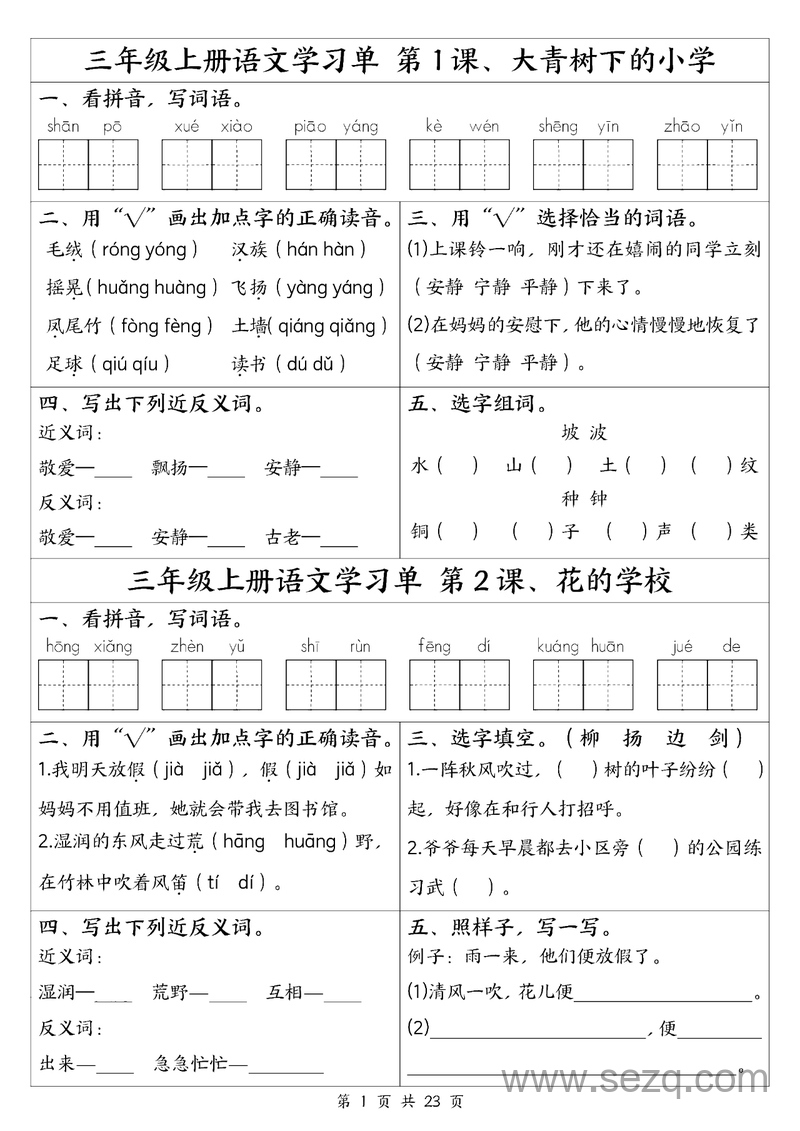 三年级上册语文学习单 第1课、大青树下的小学
一、看拼音，写词语。
shān pō xué xiào piāo yáng kè wén shēng yīn zhāo yǐn
二、用“√”画出加点字的正确读音。
毛绒（róng yóng） 汉族（hán hàn）
摇晃（huǎng huàng） 飞扬（yàng yáng）
凤尾竹（fòng fèng） 土墙（qiáng qiǎng）
足球（qiú qíu） 读书（dú dǔ）
三、用“√”选择恰当的词语。
(1)上课铃一响，刚才还在嬉闹的同学立刻
（安静 宁静 平静）下来了。
(2)在妈妈的安慰下，他的心情慢慢地恢复了
（安静 宁静 平静）。
四、写出下列近反义词。
近义词：
敬爱—____ 飘扬—____ 安静—____
反义词：
敬爱—____ 安静—____ 古老—____
五、选字组词。
坡 波
水（ ） 山（ ） 土（ ） （ ）纹
种 钟
铜（ ） （ ）子 （ ）声 （ ）类
三年级上册语文学习单 第2课、花的学校
一、看拼音，写词语。
hōng xiǎng zhèn yǔ shī rùn fēng dí kuáng huān jué de
二、用“√”画出加点字的正确读音。
1.我明天放假（jià jiǎ），假（jià jiǎ）如
妈妈不用值班，她就会带我去图书馆。
2.湿润的东风走过荒（hāng huāng）野，
在竹林中吹着风笛（tí dí）。
三、选字填空。（柳 扬 边 剑）
1.一阵秋风吹过，（ ）树的叶子纷纷（ ）
起，好像在和行人打招呼。
2.爷爷每天早晨都去小区旁（ ）的公园练
习武（ ）。
四、写出下列近反义词。
近义词：
湿润—____ 荒野—____ 互相—____
反义词：
出来—____ 急急忙忙—____
五、照样子，写一写。
例子：雨一来，他们便放假了。
(1)清风一吹，花儿便____________________。
(2)________________________，便__________
____________________________________。
www.sezq.com
第 1 页 共 23 页